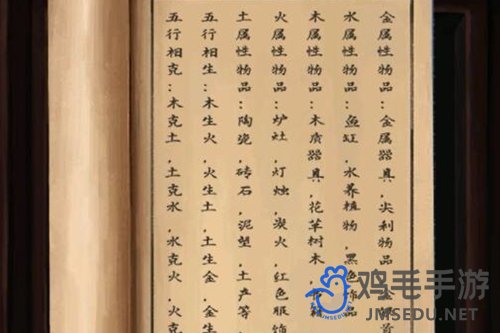 金属性物品:金属器具,尖利物品
水属性物品:鱼缸,水养植物,黑色饰品
木属性物品:木质器具,花草树木,书籍
火属性物品:炉灶,灯烛,炭火,红色服饰
土属性物品:陶瓷,砖石,泥塑,土产等
五行相生:木生火,火生土,土生金,金生
五行相克:木克土,土克水,水克火,火克
鸡毛手游
JMSEDU.NET